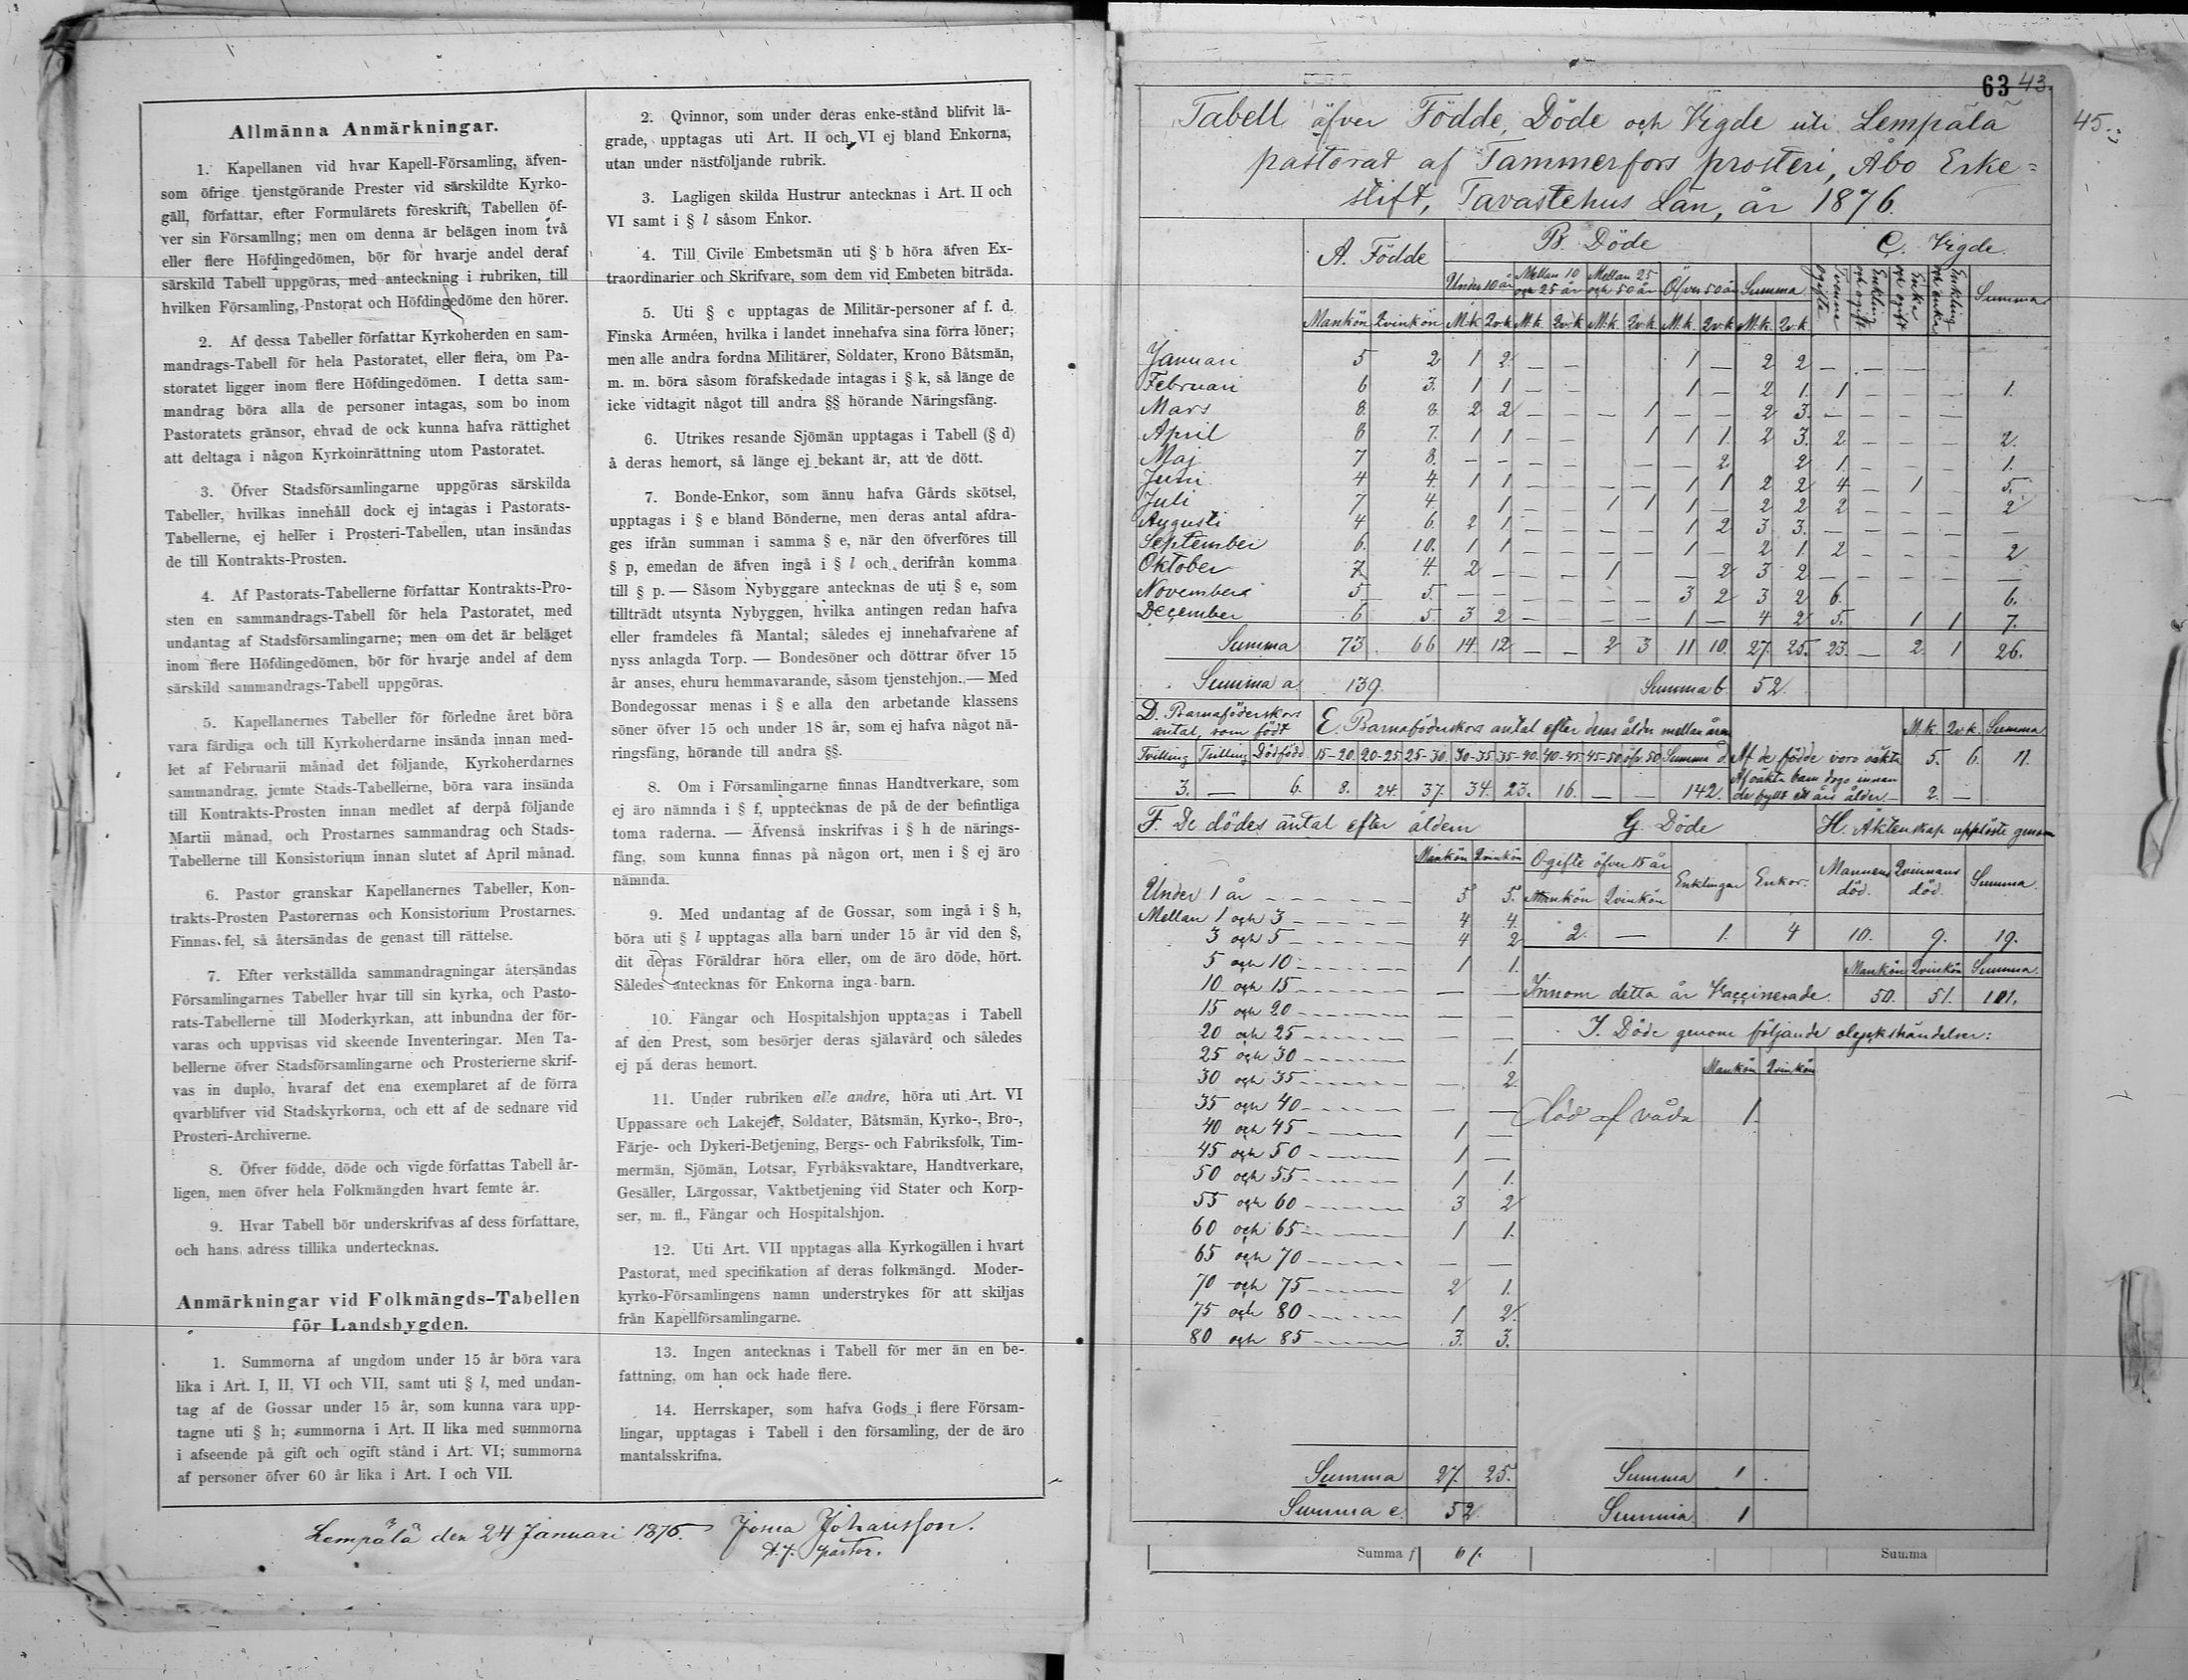 Allmänna Anmärkningar.
1. Kapellanen vid hvar Kapell-Församling, äfven-
som öfrige tjenstgörande Prester vid särskildte Kyrko-
gäll, författar, efter Formulärets föreskrift, Tabellen öf-
ver sin Församling; men om denna är belägen inom två
eller flere Höfdingedömen, bör för hvarje andel deraf
särskild Tabell uppgöras, med anteckning i rubriken, till
hvilken Församling, Pastorat och Höfdingedöme den hörer.
2. Af dessa Tabeller författar Kyrkoherden en sam-
mandrags-Tabell för hela Pastoratet, eller flera, om Pa-
storatet ligger inom flere Höfdingedömen. I detta sam-
mandrag böra alla de personer intagas, som bo inom
Pastoratets gränsor, ehvad de ock kunna hafva rättighet
att deltaga i någon Kyrkoinrättning utom Pastoratet.
3. Öfver Stadsförsamlingarne uppgöras särskilda
Tabeller, hvilkas innehåll dock ej intagas i Pastorats-
Tabellerne, ej heller i Prosteri-Tabellen, utan insändas
de till Kontrakts-Prosten.
4. Af Pastorats-Tabellerne författar Kontrakts-Pro-
sten en sammandrags-Tabell för hela Pastoratet, med
undantag af Stadsförsamlingarne; men om det är beläget
inom flere Höfdingedömen, bör för hvarje andel af dem
särskild sammandrags-Tabell uppgöras.
5. Kapellanernes Tabeller för förledne året böra
vara färdiga och till Kyrkoherdarne insända innan med-
let af Februarii månad det följande, Kyrkoherdarnes
sammandrag, jemte Stads-Tabellerne, böra vara insända
till Kontrakts-Prosten innan medlet af derpå följande
Martii månad, och Prostarnes sammandrag och Stads-
Tabellerne till Konsistorium innan slutet af April månad.
6. Pastor granskar Kapellanernes Tabeller, Kon-
trakts-Prosten Pastorernas och Konsistorium Prostarnes.
Finnas fel, så återsändas de genast till rättelse.
7. Efter verkställda sammandragningar återsändas
Församlingarnes Tabeller hvar till sin kyrka, och Pasto-
rats-Tabellerne till Moderkyrkan, att inbundna der för-
varas och uppvisas vid skeende Inventeringar. Men Ta-
bellerne öfver Stadsförsamlingarne och Prosterierne skrif-
vas in duplo, hvaraf det ena exemplaret af de förra
qvarblifver vid Stadskyrkorna, och ett af de sednare vid
Prosteri-Archiverne.
8. Öfver födde, döde och vigde författas Tabell år-
ligen, men öfver hela Folkmängden hvart femte år.
9. Hvar Tabell bör underskrifvas af dess författare,
och hans adress tillika undertecknas.
Anmärkningar vid Folkmängds-Tabellen
för Landsbygden.
1. Summorna af ungdom under 15 år böra vara
lika i Art. I, II, VI och VII, samt uti § l, med undan-
tag af de Gossar under 15 år, som kunna vara upp-
tagne uti § h; summorna i Art. II lika med summorna
i afseende på gift och ogift stånd i Art. VI; summorna
af personer öfver 60 år lika i Art. I och VII.
2. Qvinnor, som under deras enke-stånd blifvit lä-
grade, upptagas uti Art. II och VI ej bland Enkorna,
utan under nästföljande rubrik.
3. Lagligen skilda Hustrur antecknas i Art. II och
VI samt i § l såsom Enkor.
4. Till Civile Embetsmän uti § b höra äfven Ex-
traordinarier och Skrifvare, som dem vid Embeten biträda.
5. Uti § c upptagas de Militär-personer af f. d.
Finska Arméen, hvilka i landet innehafva sina förra löner;
men alle andra fordna Militärer, Soldater, Krono Båtsmän,
m. m. böra såsom förafskedade intagas i § k, så länge de
icke vidtagit något till andra §§ hörande Näringsfång.
6. Utrikes resande Sjömän upptagas i Tabell (§ d)
å deras hemort, så länge ej bekant är, att de dött.
7. Bonde-Enkor, som ännu hafva Gårds skötsel,
upptagas i § e bland Bönderne, men deras antal afdra-
ges ifrån summan i samma § e, när den öfverföres till
§ p, emedan de äfven ingå i § l och derifrån komma
till § p. — Såsom Nybyggare antecknas de uti § e, som
tillträdt utsynta Nybyggen, hvilka antingen redan hafva
eller framdeles få Mantal; således ej innehafvarene af
nyss anlagda Torp. — Bondesöner och döttrar öfver 15
år anses, ehuru hemmavarande, såsom tjenstehjon. — Med
Bondegossar menas i § e alla den arbetande klassens
söner öfver 15 och under 18 år, som ej hafva något nä-
ringsfång, hörande till andra §§.
8. Om i Församlingarne finnas Handtverkare, som
ej äro nämnda i § f, upptecknas de på de der befintliga
toma raderna. — Äfvenså inskrifvas i § h de närings-
fång, som kunna finnas på någon ort, men i § ej äro
nämnda.
9. Med undantag af de Gossar, som ingå i § h,
böra uti § l upptagas alla barn under 15 år vid den §,
dit deras Föräldrar höra eller, om de äro döde, hört.
Således antecknas för Enkorna inga barn.
10. Fångar och Hospitalshjon upptagas i Tabell
af den Prest, som besörjer deras själavård och således
ej på deras hemort.
11. Under rubriken alle andre, höra uti Art. VI
Uppassare och Lakejer, Soldater, Båtsmän, Kyrko-, Bro-,
Färje- och Dykeri-Betjening, Bergs- och Fabriksfolk, Tim-
mermän, Sjömän, Lotsar, Fyrbåksvaktare, Handtverkare,
Gesäller, Lärgossar, Vaktbetjening vid Stater och Korp-
ser, m. fl., Fångar och Hospitalshjon.
12. Uti Art. VII upptagas alla Kyrkogällen i hvart
Pastorat, med specifikation af deras folkmängd. Moder-
kyrko-Församlingens namn understrykes för att skiljas
från Kapellförsamlingarne.
13. Ingen antecknas i Tabell för mer än en be-
fattning, om han ock hade flere.
14. Herrskaper, som hafva Gods i flere Försam-
lingar, upptagas i Tabell i den församling, der de äro
mantalsskrifna.
Lempälä den 24 Januari 1876. Josua Johansson.
t.f. pastor.
63 43.
45.
Tabell öfver Födde, Döde och Vigde uti Lempälä
pastorat af Tammerfors prosteri, Åbo Erke=
stift, Tavastehus Län, år 1876.
A. Födde B. Döde C. Vigde.
Under 10 år Mellan 10 och 25 år Mellan 25 och 50 år Öfver 50 år Summa Tvenne ogifte Enkling och ogift Enka och ogift Enkling och enka Summa
Mankön Qvinkön M.k. Qv.k. M.k. Qv.k. M.k. Qv.k. M.k. Qv.k. M.k. Qv.k.
Januari 5 2 1 2 — — 1 — 2 2 — — —
Februari 6 3. 1 1 — — 1 — 2 1. 1 — — — 1.
Mars 8. 8. 2 2 — — — 1 — — 2 3. — — — —
April 8 7. 1 1 — — 1 1 1. 2 3. 2 — — — 2.
Maj 7 8. — — — — — — 2. 2 1. — — — 1.
Juni 4 4. 1 1 — — — — 1 1 2 2 4 — 1 5.
Juli 7 4. 1 — — 1 1 1 — 2 2 2 — — — 2
Augusti 4 6. 2 1 — — — — 1 2 3 3. — — — — —
September 6. 10. 1 1 — — — — 1 — 2 1. 2 — — — 2
Oktober 7 4. 2 — — — 1 — 2 3 2 — — — — —
November 5 5. — — — — — — 3 2 3 2 6. 6.
December 6 5. 3 2 — — — — 1 — 4 2 5. 1 1 7.
Summa 73. 66 14 12 — — 2 3 11 10. 27. 25. 23. — 2. 1 26.
Summa a. 139. Summa b. 52.
D. Barnaföderskors antal, som födt E. Barnaföderskors antal efter deras ålder mellan åren M.k. Qv.k. Summa
Tvilling Trilling Dödfödd 15-20. 20-25. 25-30. 30-35. 35-40. 40-45. 45-50. öfv. 50 Summa d. Af de födde voro oäkta 5. 6. 11.
3. — 6. 8. 24. 37. 34. 23. 16. — — 142. Af oäkta barn dogo innan de fyllt ett års ålder — 2. —
F. De dödes antal efter åldern G. Döde H. Äktenskap upplöste genom
Mankön Qvinkön Ogifte öfver 15 år Enklingar Enkor. Mannens död. Qvinnans död. Summa.
Mankön Qvinkön
2. — 1. 4 10. 9. 19.
Mankön Qvinkön Summa.
Innom detta år Vaccinerade. 50. 51. 101.
I. Döde genom följande olyckshändelser:
Mankön Qvinkön
död af våda 1.
Under 1 år 5 5.
Mellan 1 och 3 4 4.
3 och 5 4 2
5 och 10 1 1.
10 och 15 — —
15 och 20 — —
20 och 25 — —
25 och 30 1.
30 och 35 — 2.
35 och 40 — —
40 och 45 1 —
45 och 50 1 —
50 och 55 1 1.
55 och 60 3 2
60 och 65 1 1.
65 och 70 — —
70 och 75 2 1.
75 och 80 1 2.
80 och 85 3. 3.
Summa 27. 25. Summa 1.
Summa e. 52. Summa 1
Summa f 61. Summa